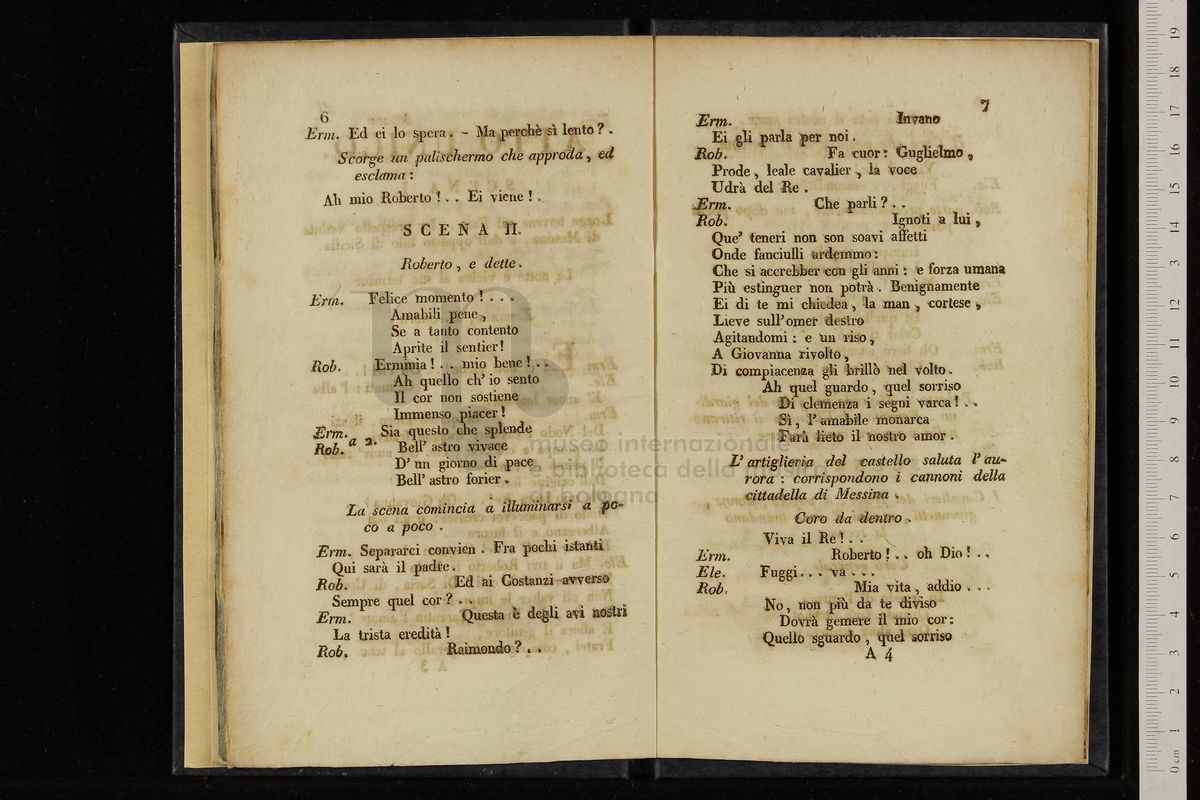 6
Erm. Ed ei lo spera. - Ma perchè sì lento?.
Scorge un palischermo che approda, ed
esclama:
Ah mio Roberto!.. Ei viene!.
SCENA II.
Roberto, e dette.
Erm. Felice momento!...
Amabili pene,
Se a tanto contento
Aprite il sentier!
Rob. Erminia!.. mio bene!..
Ah quello ch' io sento
Il cor non sostiene
Immenso piacer!
Erm. Sia questo che splende
Rob. a 2. Bell' astro vivace
D' un giorno di pace
Bell' astro forier.
La scena comincia a illuminarsi a po-
co a poco.
Erm. Separarci convien. Fra pochi istanti
Qui sarà il padre.
Rob. Ed ai Costanzi avverso
Sempre quel cor?..
Erm. Questa è degli avi nostri
La trista eredità!
Rob. Raimondo?..
7
Erm. Invano
Ei gli parla per noi.
Rob. Fa cuor: Guglielmo,
Prode, leale cavalier, la voce
Udrà del Re.
Erm. Che parli?..
Rob. Ignoti a lui,
Que' teneri non son soavi affetti
Onde fanciulli ardemmo:
Che si accrebber con gli anni: e forza umana
Più estinguer non potrà. Benignamente
Ei di te mi chiedea, la man, cortese,
Lieve sull' omer destro
Agitandomi: e un riso,
A Giovanna rivolto,
Di compiacenza gli brillò nel volto.
Ah quel guardo, quel sorriso
Di clemenza i segni varca!..
Sì, l' amabile monarca
Farà lieto il nostro amor.
L' artiglieria del castello saluta l' au-
rora: corrispondono i cannoni della
cittadella di Messina.
Coro da dentro.
Viva il Re!..
Erm. Roberto!.. oh Dio!..
Ele. Fuggi... va...
Rob. Mia vita, addio...
No, non più da te diviso
Dovrà gemere il mio cor:
Quello sguardo, quel sorriso
A 4
museo internazionale
e biblioteca della musica
di bologna
0 cm 1 2 3 4 5 6 7 8 9 10 11 12 13 14 15 16 17 18 19